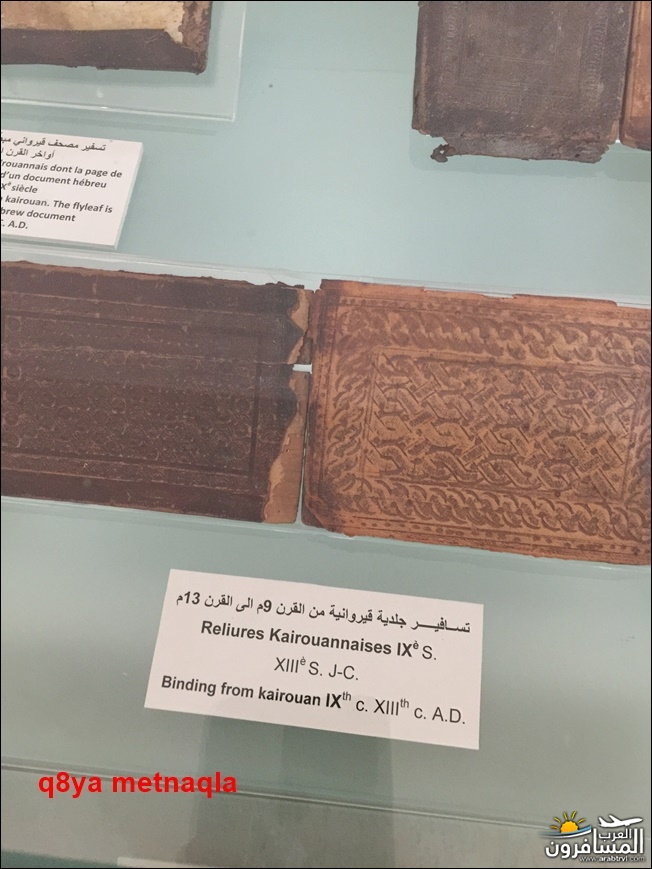 تسفير مصحف قيرواني
أواخر القرن
dont la page de
d'un document hébreu
siècle
kairouan. The flyleaf is
document
A.D.
تســافيــــر جلدية قيروانية من القرن 9م الى القرن 13م
Reliures Kairouannaises IXè S.
XIIIè S. J-C.
Binding from kairouan IXth c. XIIIth c. A.D.
q8ya metnaqla
العرب
المسافرون
www.arabtrvl.com